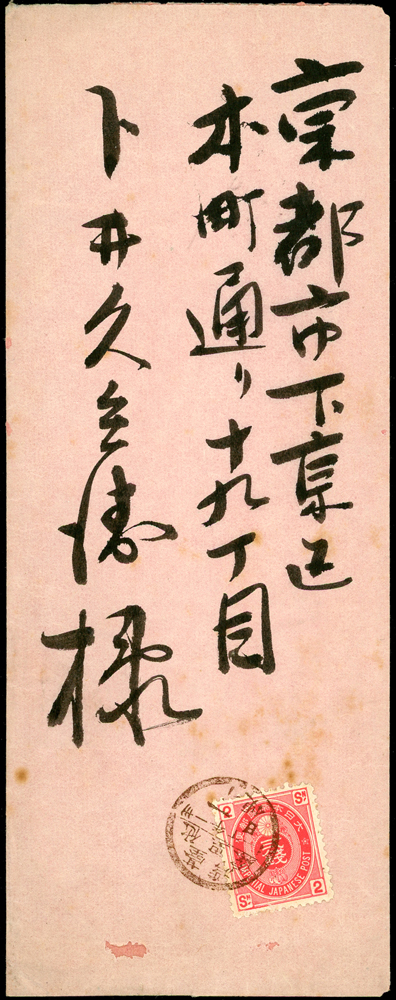 京都市下京区
本町通り十九丁目
卜井久兵衛様
大日本
2 SN
IMPERIAL JAPANESE POST
SN 2